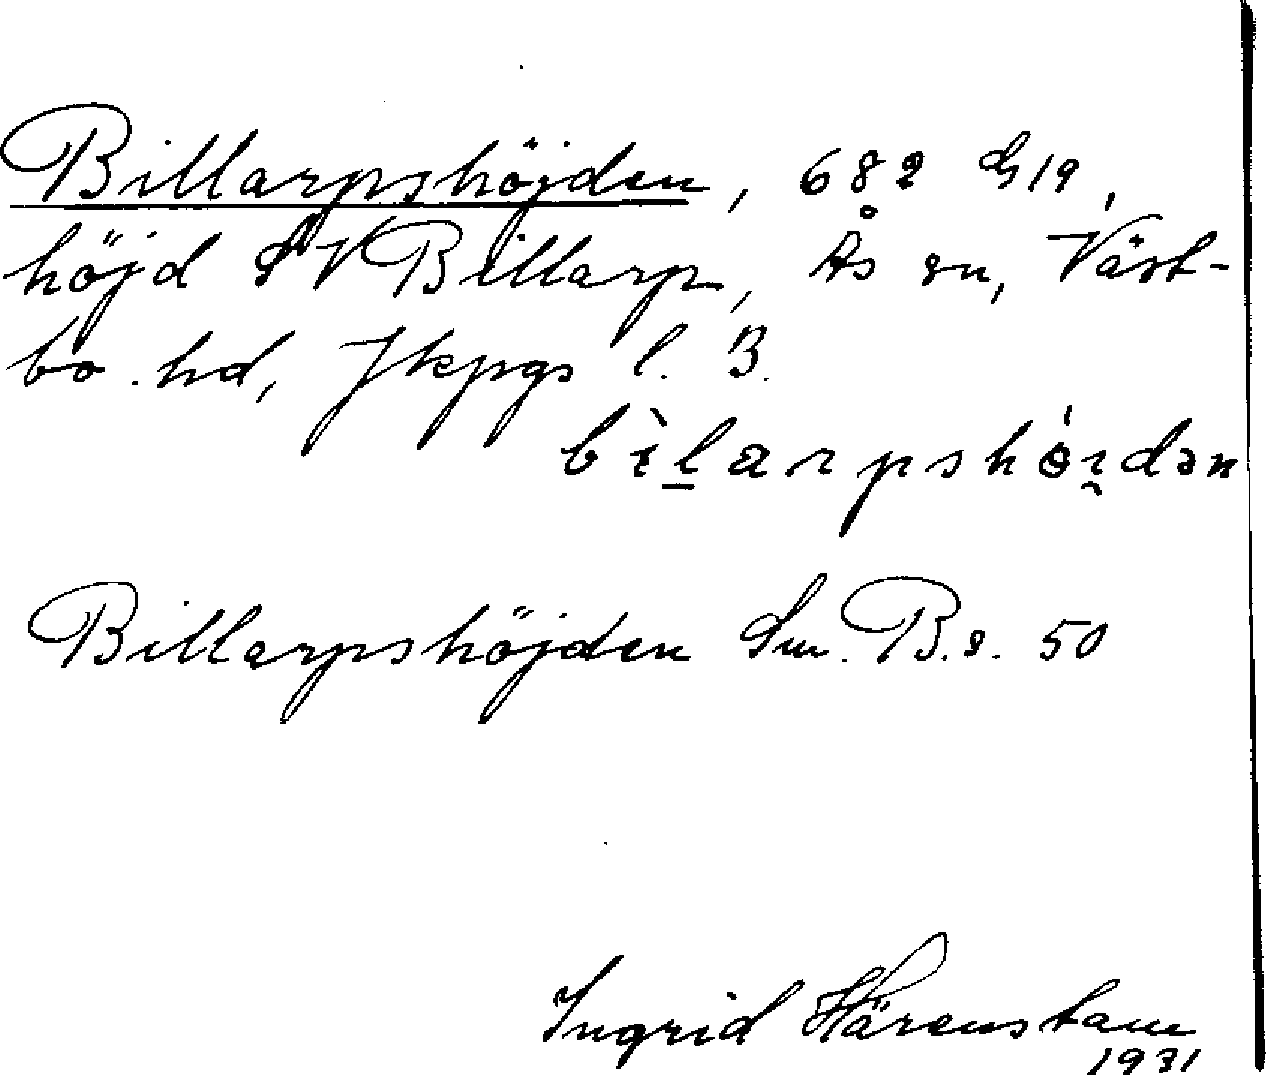 Billarpshöjden, 682 G19,
höjd SV Billarp, Ås sn, Väst-
bo hd, Jkpgs l. B.
bìlarpshó́i̯dən
Billarpshöjden Sm. B. s. 50
Ingrid Härenstam
1931